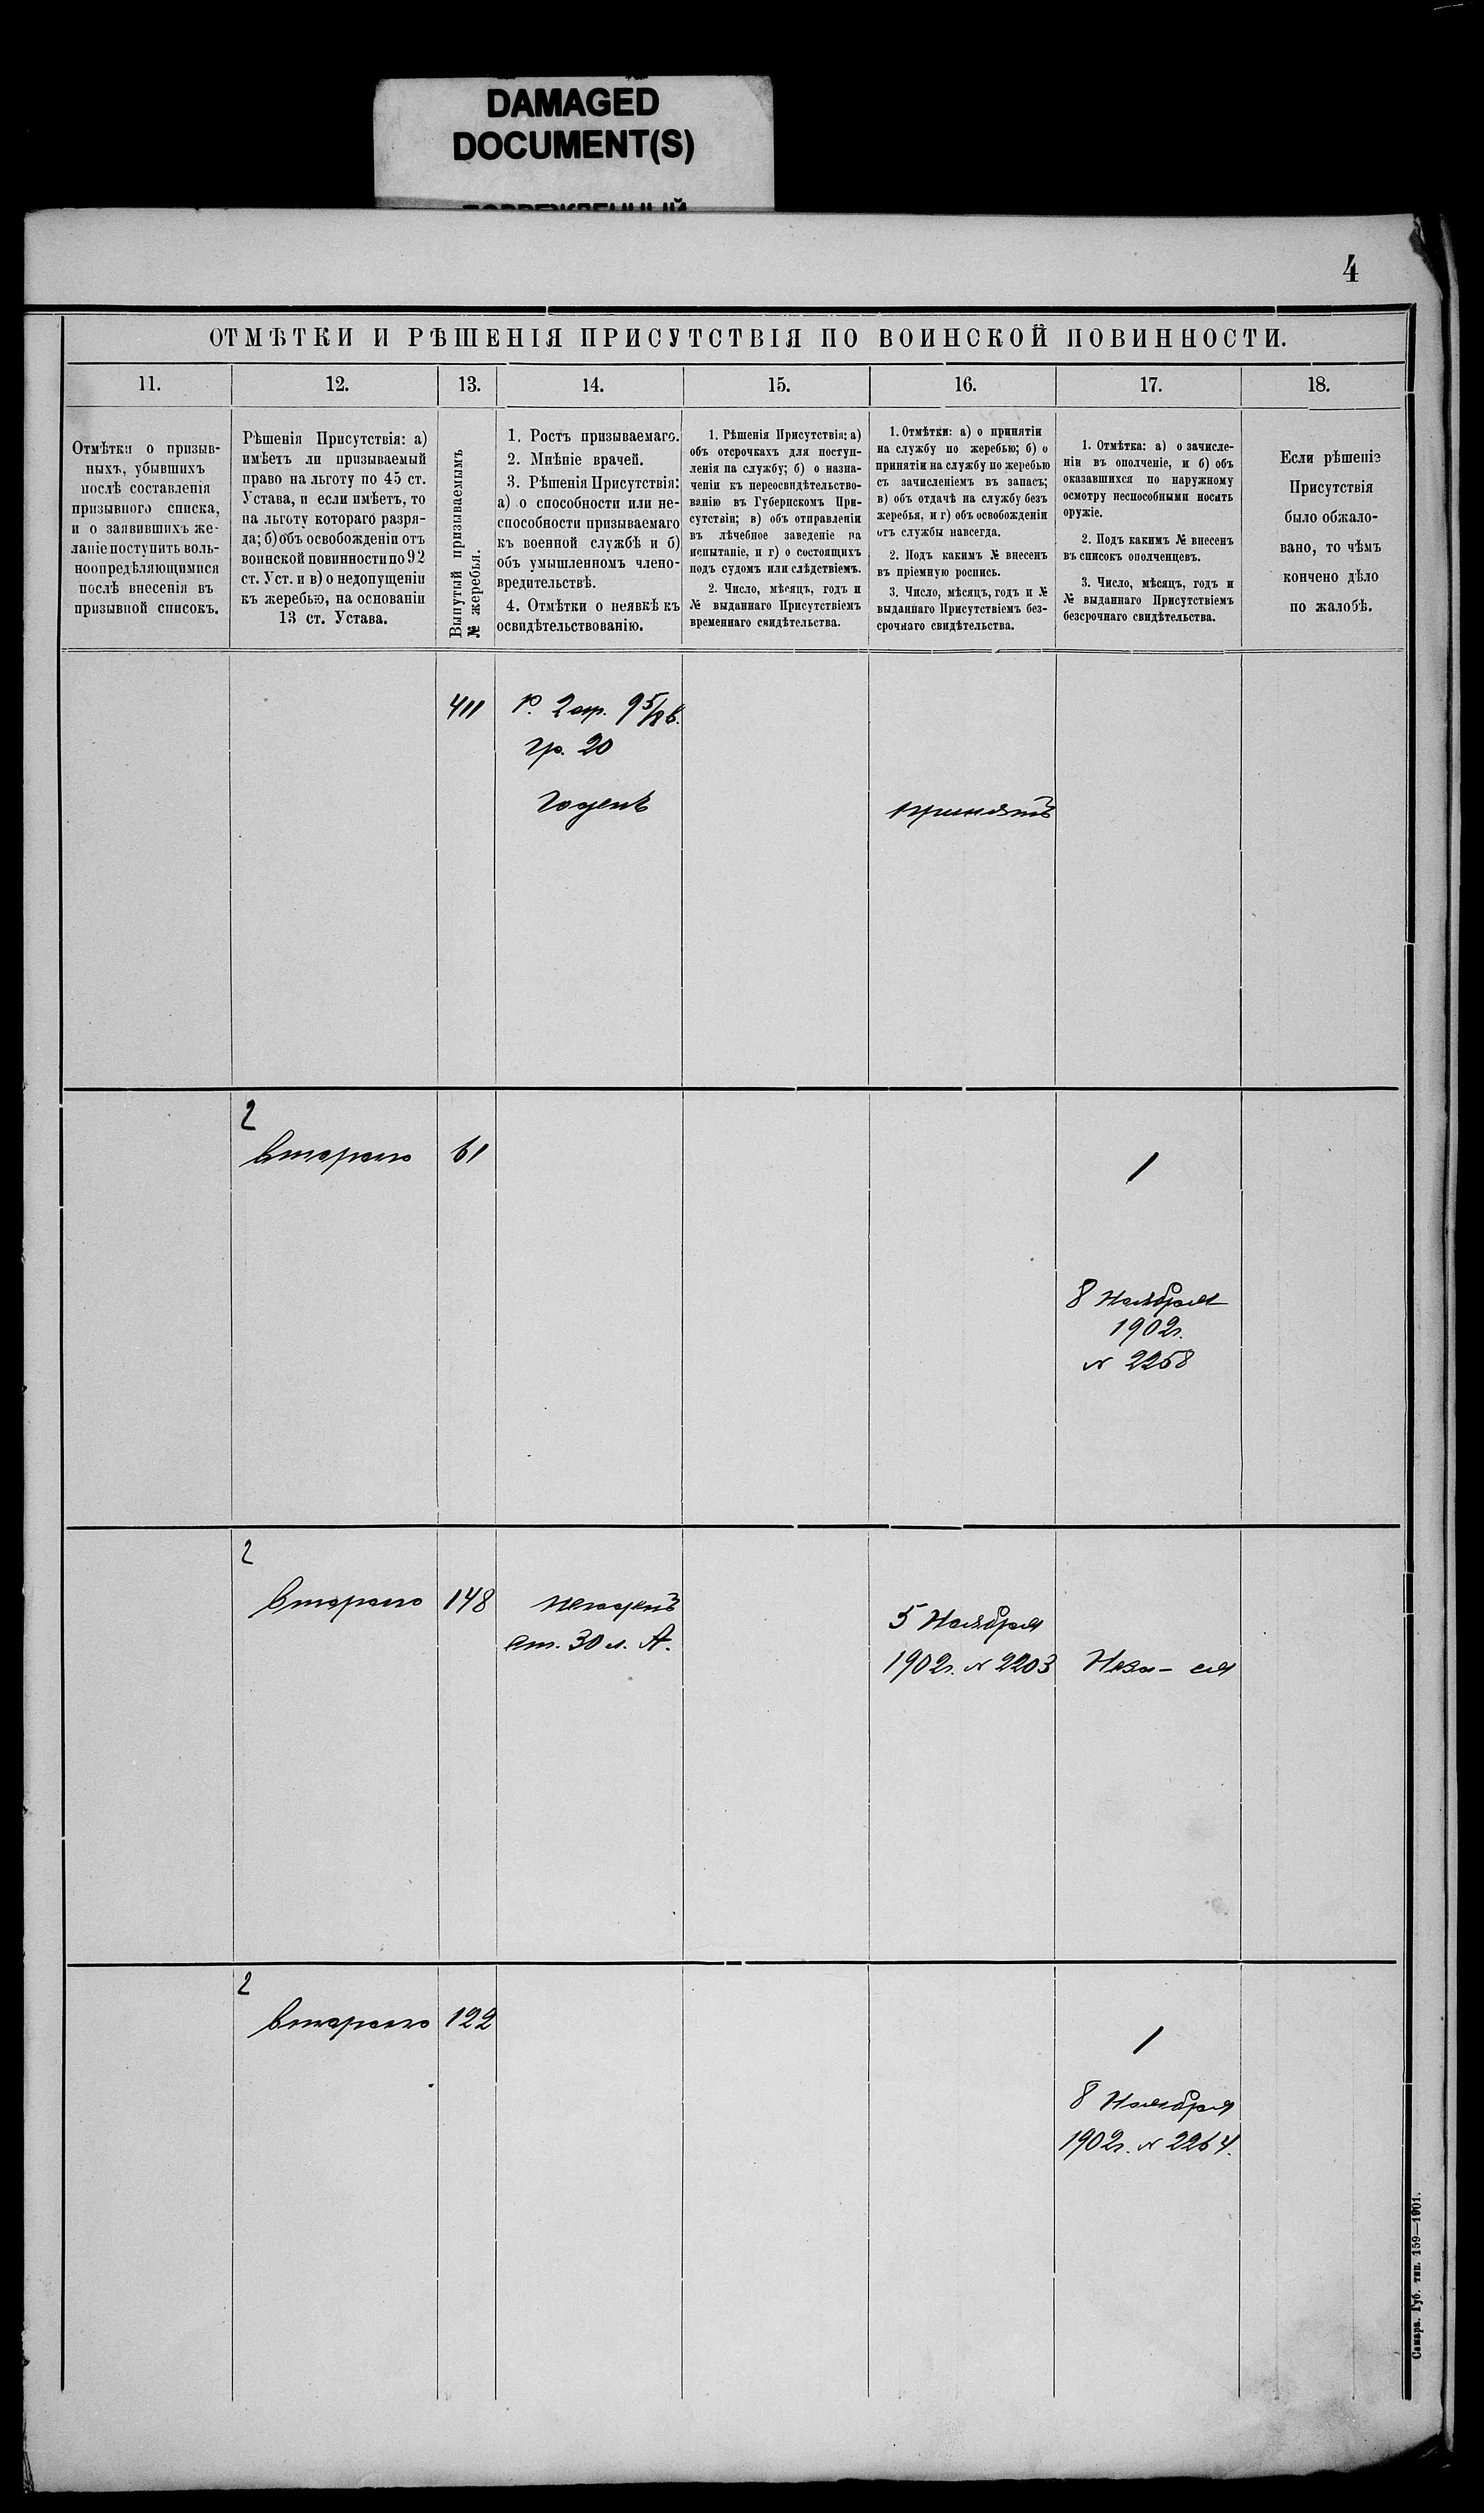 DAMAGED
DOCUMENT(S)
4
ОТМѢТКИ И РѢШЕНІЯ ПРИСУТСТВІЯ ПО ВОИНСКОЙ ПОВИННОСТИ.
11.
12.
13.
14.
15.
16.
17.
18.
Отмѣтки о призыв-
ныхъ, убывшихъ
послѣ составленія
призывного списка,
и о заявившихъ же-
ланіе поступить воль-
ноопредѣляющимися
послѣ внесенія въ
призывной списокъ.
Рѣшенія Присутствія: а)
имѣетъ ли призываемый
право на льготу по 45 ст.
Устава, и если имѣетъ, то
на льготу котораго разря-
да; б) объ освобожденіи отъ
воинской повинности по 92
ст. Уст. и в) о недопущеніи
къ жеребью, на основаніи
13 ст. Устава.
Вынутый призываемымъ
№ жеребья.
1. Ростъ призываемаго.
2. Мнѣніе врачей.
3. Рѣшенія Присутствія:
а) о способности или не-
способности призываемаго
къ военной службѣ и б)
объ умышленномъ члено-
вредительствѣ.
4. Отмѣтки о неявкѣ къ
освидѣтельствованію.
1. Рѣшенія Присутствія: а)
объ отсрочкахъ для поступ-
ленія на службу; б) о назна-
ченіи къ переосвидѣтельство-
ванію въ Губернскомъ При-
сутствіи; в) объ отправленіи
въ лѣчебное заведеніе на
испытаніе, и г) о состоящихъ
подъ судомъ или слѣдствіемъ.
2. Число, мѣсяцъ, годъ и
№ выданнаго Присутствіемъ
временнаго свидѣтельства.
1. Отмѣтки: а) о принятіи
на службу по жеребью; б) о
принятіи на службу по жеребью
съ зачисленіемъ въ запасъ;
в) объ отдачѣ на службу безъ
жеребья, и г) объ освобожденіи
отъ службы навсегда.
2. Подъ какимъ № внесенъ
въ пріемную роспись.
3. Число, мѣсяцъ, годъ и №
выданнаго Присутствіемъ без-
срочнаго свидѣтельства.
1. Отмѣтка: а) о зачисле-
ніи въ ополченіе, и б) объ
оказавшихся по наружному
осмотру неспособными носить
оружіе.
2. Подъ какимъ № внесенъ
въ списокъ ополченцевъ.
3. Число, мѣсяцъ, годъ и
№ выданнаго Присутствіемъ
безсрочнаго свидѣтельства.
Если рѣшеніе
Присутствія
было обжало-
вано, то чѣмъ
кончено дѣло
по жалобѣ.
411
Р. 2 ар. 9 5/8 в.
гр. 20
Годенъ
принятъ
2
второго
61
1
8 Ноября
1902г.
№ 2258
2
второго
148
негоденъ
ст. 30 л. А.
5 Ноября
1902г. № 2203
2
второго
122
1
8 Ноября
1902г. № 2264.
Самара. Губ. тип. 159—1901.